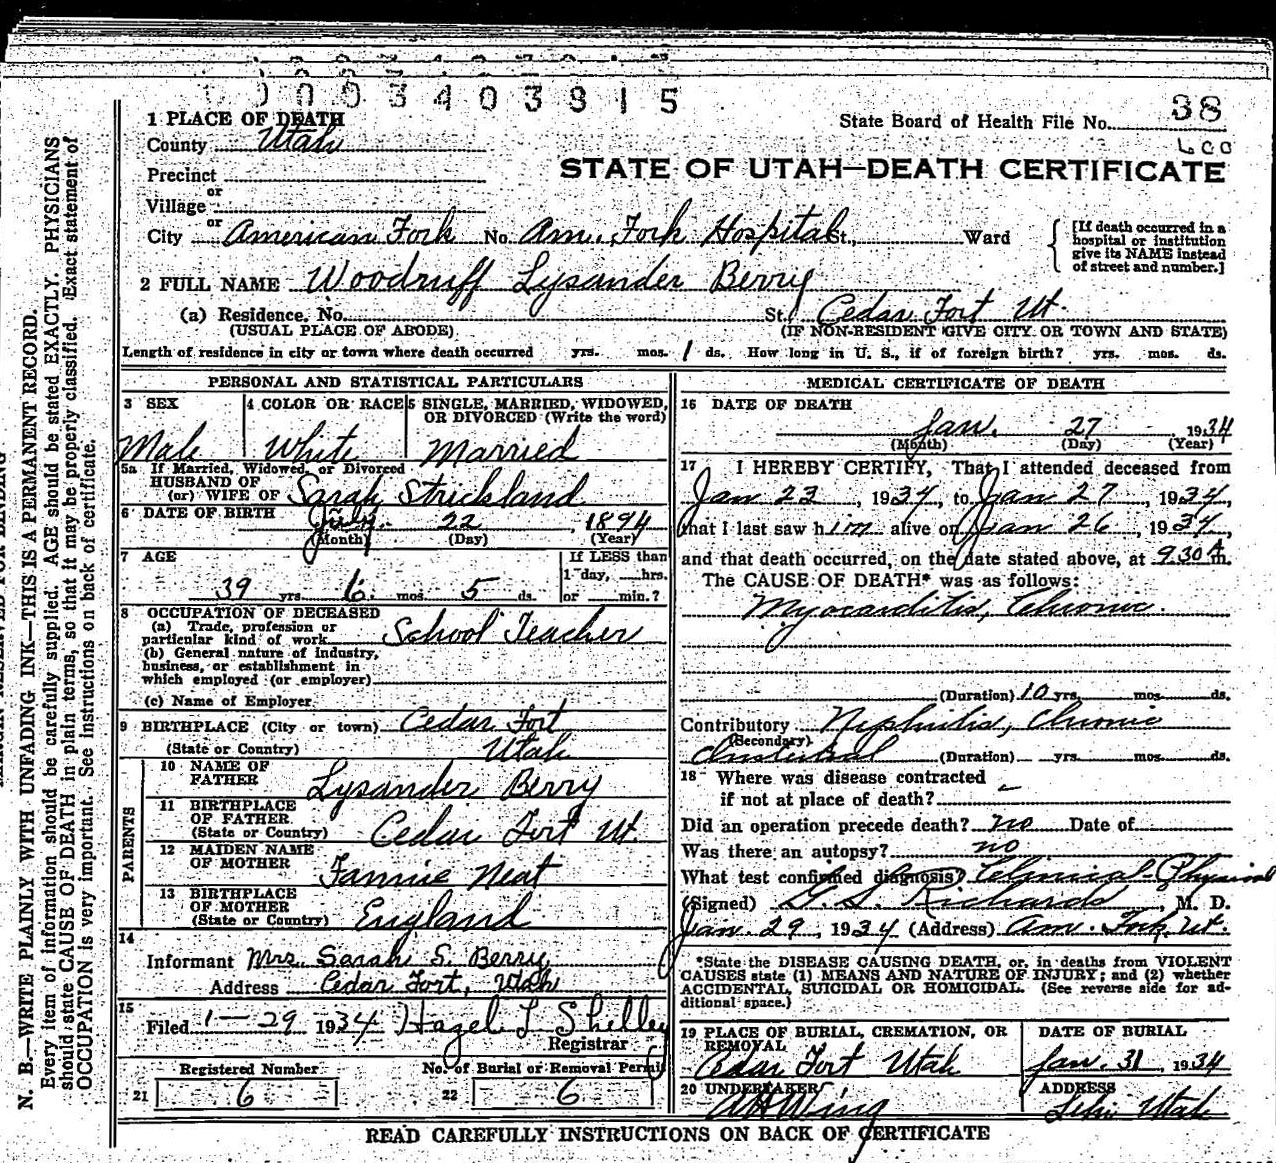 0003403915
38
State Board of Health File No.
STATE OF UTAH—DEATH CERTIFICATE
1 PLACE OF DEATH
County Utah
Precinct
or
Village
or
City American Fork No. Am. Fork Hospital St., Ward
[If death occurred in a hospital or institution give its NAME instead of street and number.]
2 FULL NAME Woodruff Lysander Berry
(a) Residence. No. St. Cedar Fort Ut.
(USUAL PLACE OF ABODE) (IF NON-RESIDENT GIVE CITY OR TOWN AND STATE)
Length of residence in city or town where death occurred yrs. mos. 1 ds. How long in U. S., if of foreign birth? yrs. mos. ds.
PERSONAL AND STATISTICAL PARTICULARS
3 SEX
Male
4 COLOR OR RACE
White
5 SINGLE, MARRIED, WIDOWED, OR DIVORCED (Write the word)
Married
5a If Married, Widowed, or Divorced
HUSBAND OF
(or) WIFE OF Sarah Strickland
6 DATE OF BIRTH July 22, 1894
(Month) (Day) (Year)
7 AGE
39 yrs. 6 mos. 5 ds.
If LESS than
1 day, hrs.
or min.?
8 OCCUPATION OF DECEASED
(a) Trade, profession or
particular kind of work School Teacher
(b) General nature of industry,
business, or establishment in
which employed (or employer)
(c) Name of Employer
9 BIRTHPLACE (City or town) Cedar Fort
(State or Country) Utah
PARENTS
10 NAME OF FATHER Lysander Berry
11 BIRTHPLACE OF FATHER (State or Country) Cedar Fort Ut.
12 MAIDEN NAME OF MOTHER Fannie Neat
13 BIRTHPLACE OF MOTHER (State or Country) England
14
Informant Mrs. Sarah S. Berry
Address Cedar Fort, Utah
15
Filed 1-29 1934 Hazel L Shelley
Registrar
Registered Number No. of Burial or Removal Permit
21 6 22 6
MEDICAL CERTIFICATE OF DEATH
16 DATE OF DEATH
Jan. 27 1934
(Month) (Day) (Year)
17 I HEREBY CERTIFY, That I attended deceased from
Jan 23, 1934, to Jan 27, 1934,
that I last saw him alive on Jan 26, 1934,
and that death occurred, on the date stated above, at 9.30 A m.
The CAUSE OF DEATH* was as follows:
Myocarditis, Chronic.
(Duration) 10 yrs. mos. ds.
Contributory Nephritis, Chronic
(Secondary)
(Duration) yrs. mos. ds.
18 Where was disease contracted
if not at place of death?
Did an operation precede death? no Date of
Was there an autopsy? no
What test confirmed diagnosis? Clinical Physical
(Signed) Richards, M. D.
Jan. 29, 1934 (Address) Am. Fork, Ut.
*State the DISEASE CAUSING DEATH, or, in deaths from VIOLENT
CAUSES state (1) MEANS AND NATURE OF INJURY; and (2) whether
ACCIDENTAL, SUICIDAL OR HOMICIDAL. (See reverse side for ad-
ditional space.)
19 PLACE OF BURIAL, CREMATION, OR REMOVAL
Cedar Fort Utah
DATE OF BURIAL
Jan. 31, 1934
20 UNDERTAKER
Wing
ADDRESS
Lehi Utah
READ CAREFULLY INSTRUCTIONS ON BACK OF CERTIFICATE
N. B.—WRITE PLAINLY WITH UNFADING INK—THIS IS A PERMANENT RECORD.
Every item of information should be carefully supplied. AGE should be stated EXACTLY. PHYSICIANS
should state CAUSE OF DEATH in plain terms, so that it may be properly classified. Exact statement of
OCCUPATION is very important. See instructions on back of certificate.